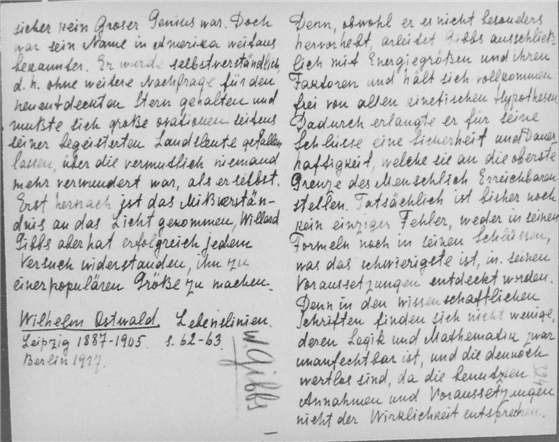 sicher kein Groser Genius war. Doch
war sein Name in Amerika weitaus
bekannter. Er wurde selbstverständlich
d. h. ohne weitere Nachfrage für den
neuentdeckten Stern gehalten und
mußte sich große Ovationen seitens
seiner begeisterten Landsleute gefallen
lassen, über die vermutlich niemand
mehr verwundert war, als er selbst.
Erst hernach ist das Mißverstän-
dnis an das Licht gekommen, Willard
Gibbs aber hat erfolgreich jedem
Versuch widerstanden, ihn zu
einer populären Größe zu machen.
Wilhelm Ostwald Lebenslinien.
Leipzig 1887-1905. s. 62-63.
Berlin 1927.
W Gibbs
Denn, obwohl er es nicht besonders
hervorhebt, arbeitet Gibbs ausschließ
lich mit Energiegrößen und ihren
Faktoren und hält sich vollkommen
frei von allen kinetischen Hypothesen
Dadurch erlangte er für seine
Schlüsse eine Sicherheit und Dauer
haftigkeit, welche sie an die oberste
Grenze des Menschlich Erreichbaren
stellen. Tatsächlich ist bisher noch
kein einziger Fehler, weder in seinen
Formeln noch in seinen Schlüssen,
was das schwierigste ist, in seinen
Voraussetzungen entdeckt worden.
Denn in den wissenschaftlichen
Schriften finden sich nicht wenige,
deren Logik und Mathematik zwar
unanfechtbar ist, und die dennoch
wertlos sind, da die benutzten
Annahmen und Voraussetzungen
nicht der Wirklichkeit entsprechen.